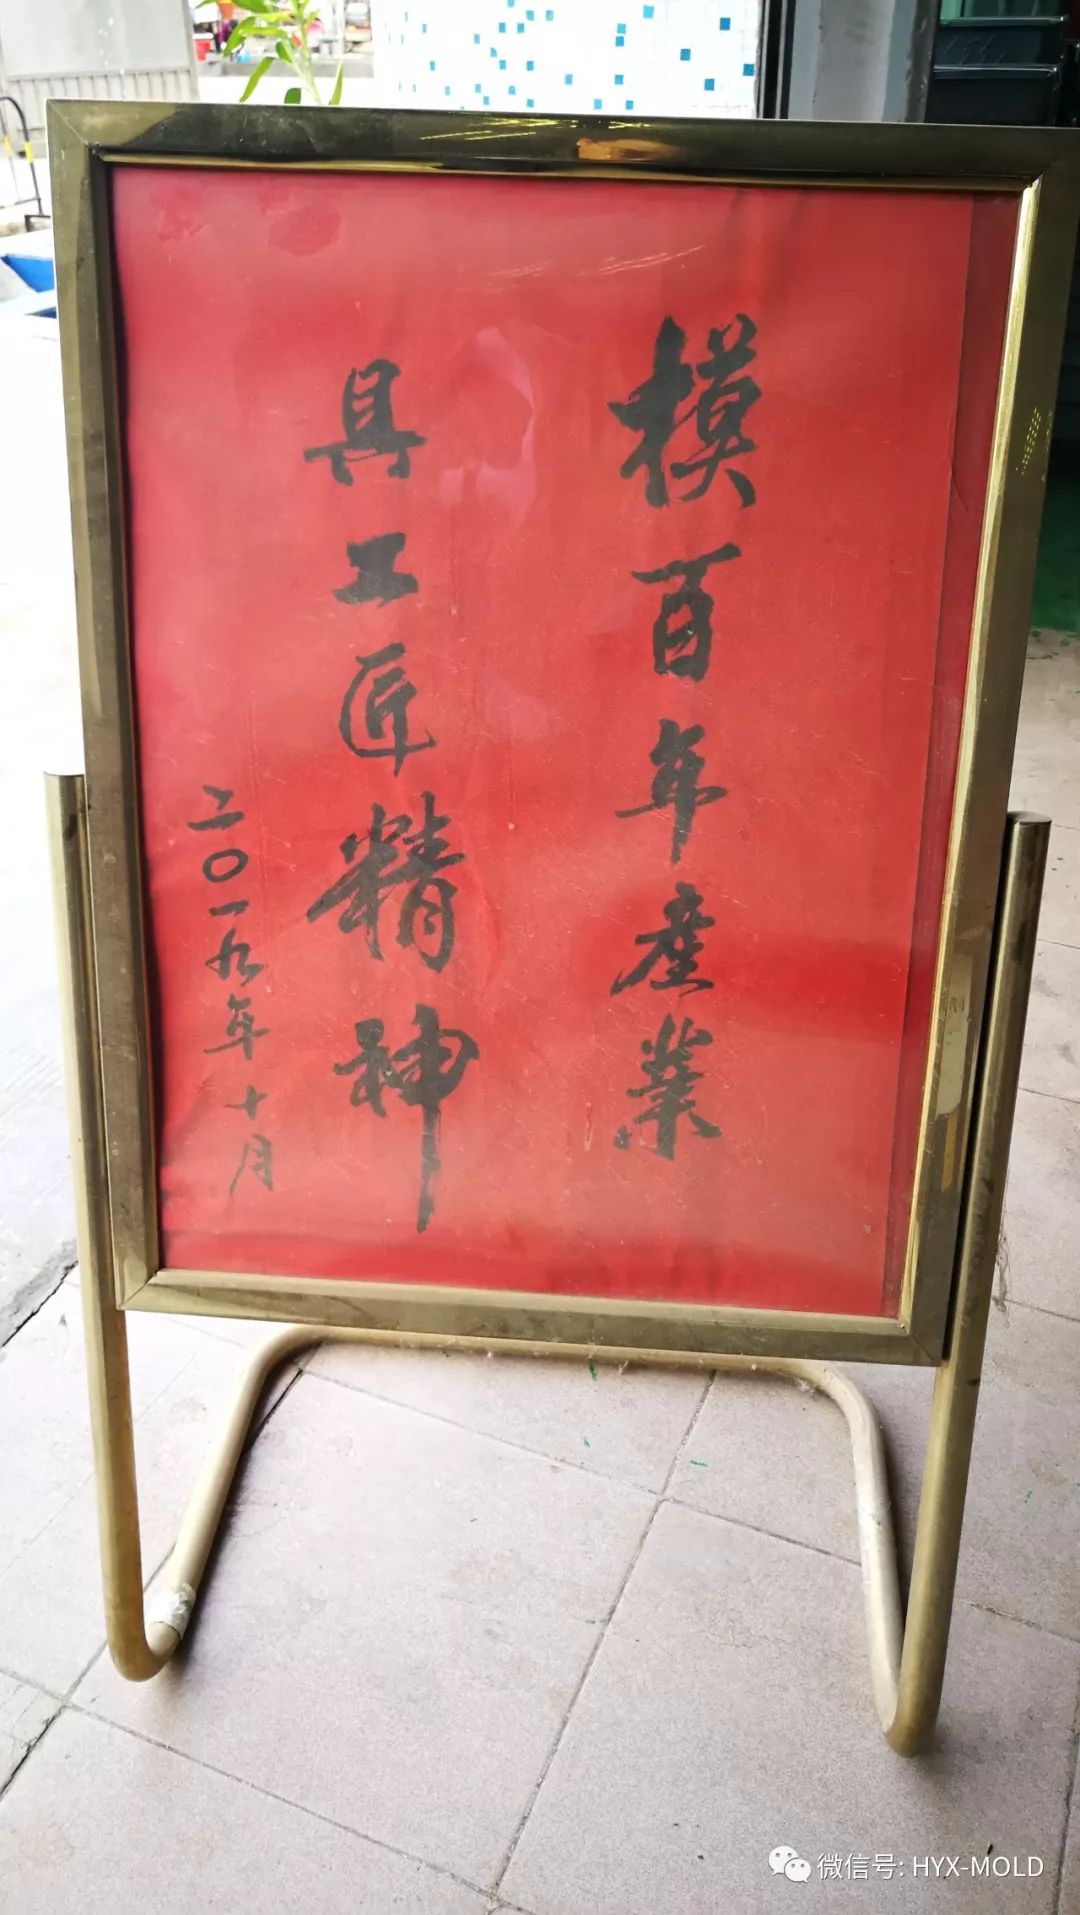 模百年產業
具工匠精神
二〇一九年十月
微信号: HYX-MOLD